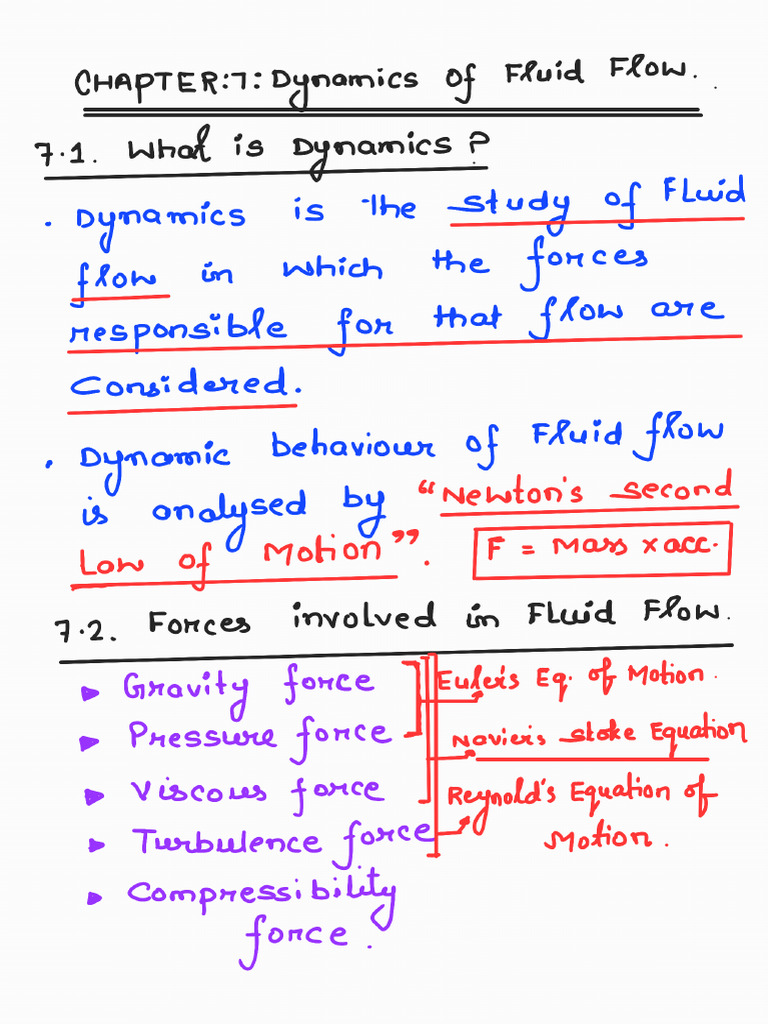 CHAPTER:7: Dynamics of Fluid Flow.
7.1. What is Dynamics?
. Dynamics is the study of Fluid
flow in which the forces
responsible for that flow are
Considered.
. Dynamic behaviour of Fluid flow
is analysed by "Newton's second
Law of Motion".
F = Mass x acc.
7.2. Forces involved in Fluid Flow.
▶ Gravity force
▶ Pressure force
▶ Viscous force
▶ Turbulence force
▶ Compressibility
force.
Euler's Eq. of Motion.
Navier's stoke Equation
Reynold's Equation of
Motion.